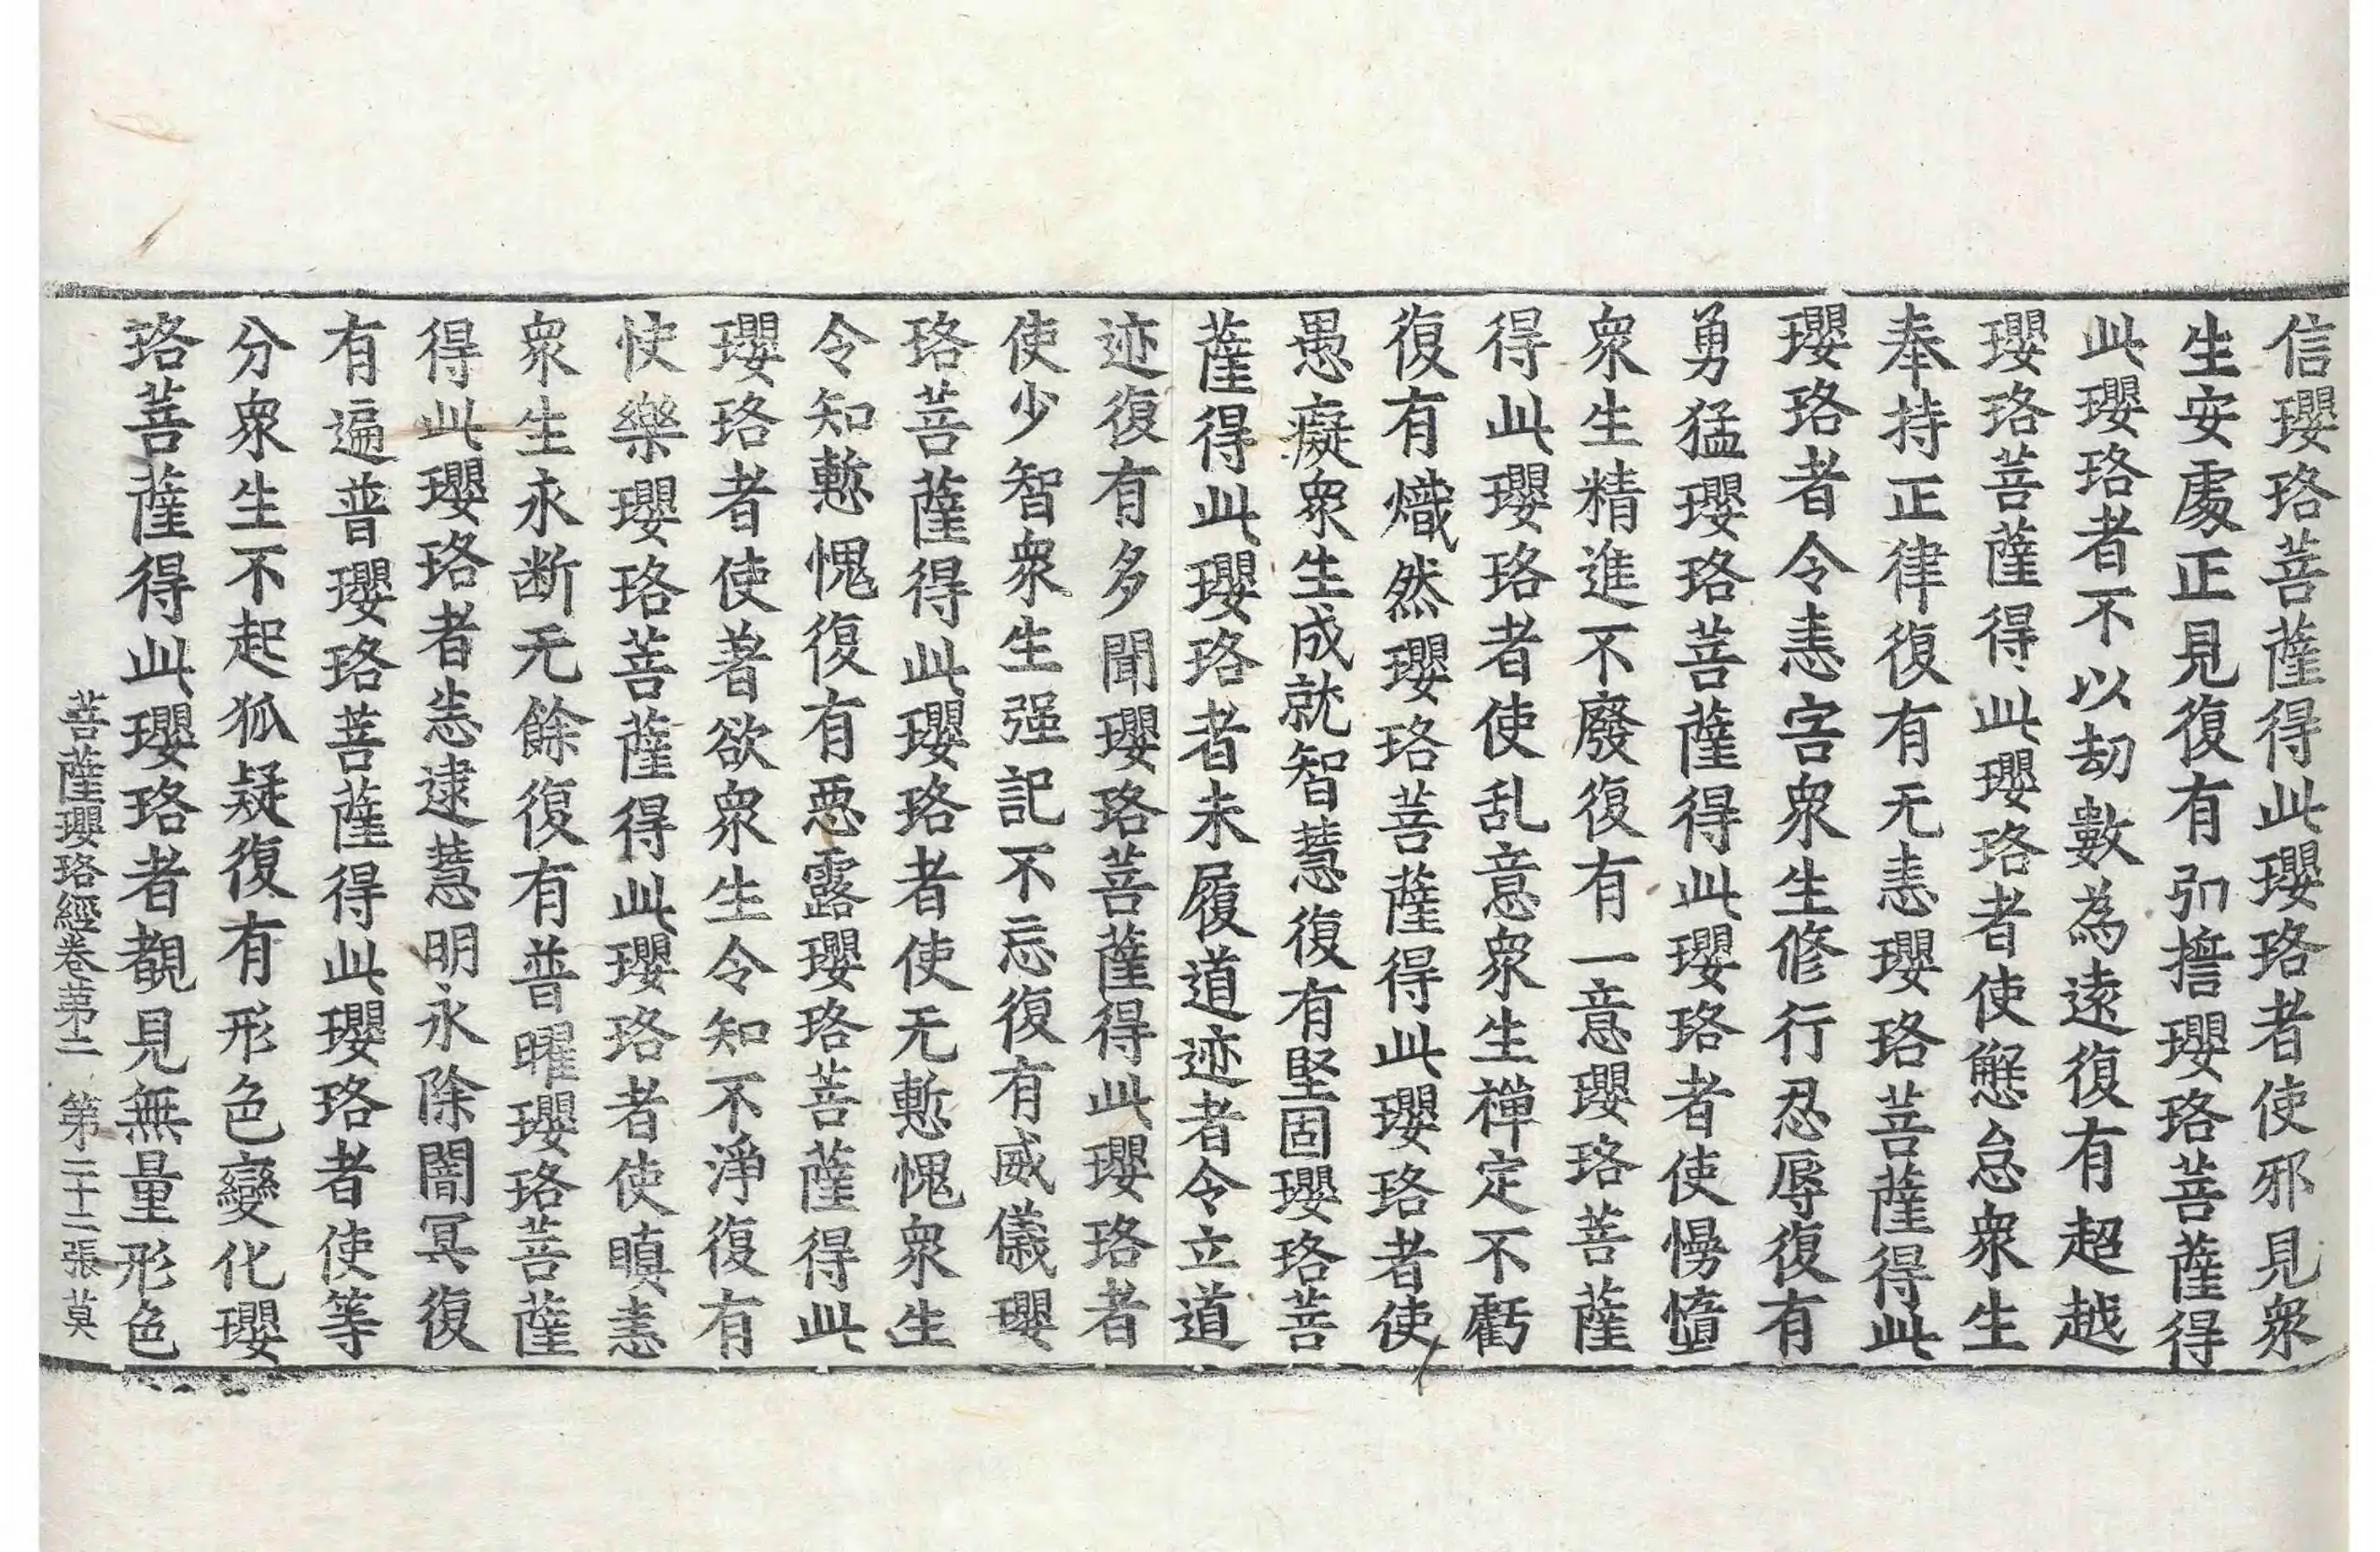 信瓔珞菩薩得此瓔珞者使邪見衆
生安處正見復有弘擔瓔珞菩薩得
此瓔珞者不以劫數為遠復有超越
瓔珞菩薩得此瓔珞者使懈怠衆生
奉持正律復有无恚瓔珞菩薩得此
瓔珞者令恚害衆生修行忍辱復有
勇猛瓔珞菩薩得此瓔珞者使慢憻
衆生精進不廢復有一意瓔珞菩薩
得此瓔珞者使乱意衆生禪定不虧
復有熾然瓔珞菩薩得此瓔珞者使
愚癡衆生成就智慧復有堅固瓔珞菩
薩得此瓔珞者未履道迹者令立道
迹復有多聞瓔珞菩薩得此瓔珞者
使少智衆生强記不忘復有威儀瓔
珞菩薩得此瓔珞者使无慙愧衆生
令知慙愧復有惡露瓔珞菩薩得此
瓔珞者使著欲衆生令知不淨復有
快樂瓔珞菩薩得此瓔珞者使瞋恚
衆生永断无餘復有普曜瓔珞菩薩
得此瓔珞者恙逮慧明永除闇冥復
有遍普瓔珞菩薩得此瓔珞者使等
分衆生不起狐疑復有形色變化瓔
珞菩薩得此瓔珞者覩見無量形色
菩薩瓔珞經卷苐二 第二十二張 莫